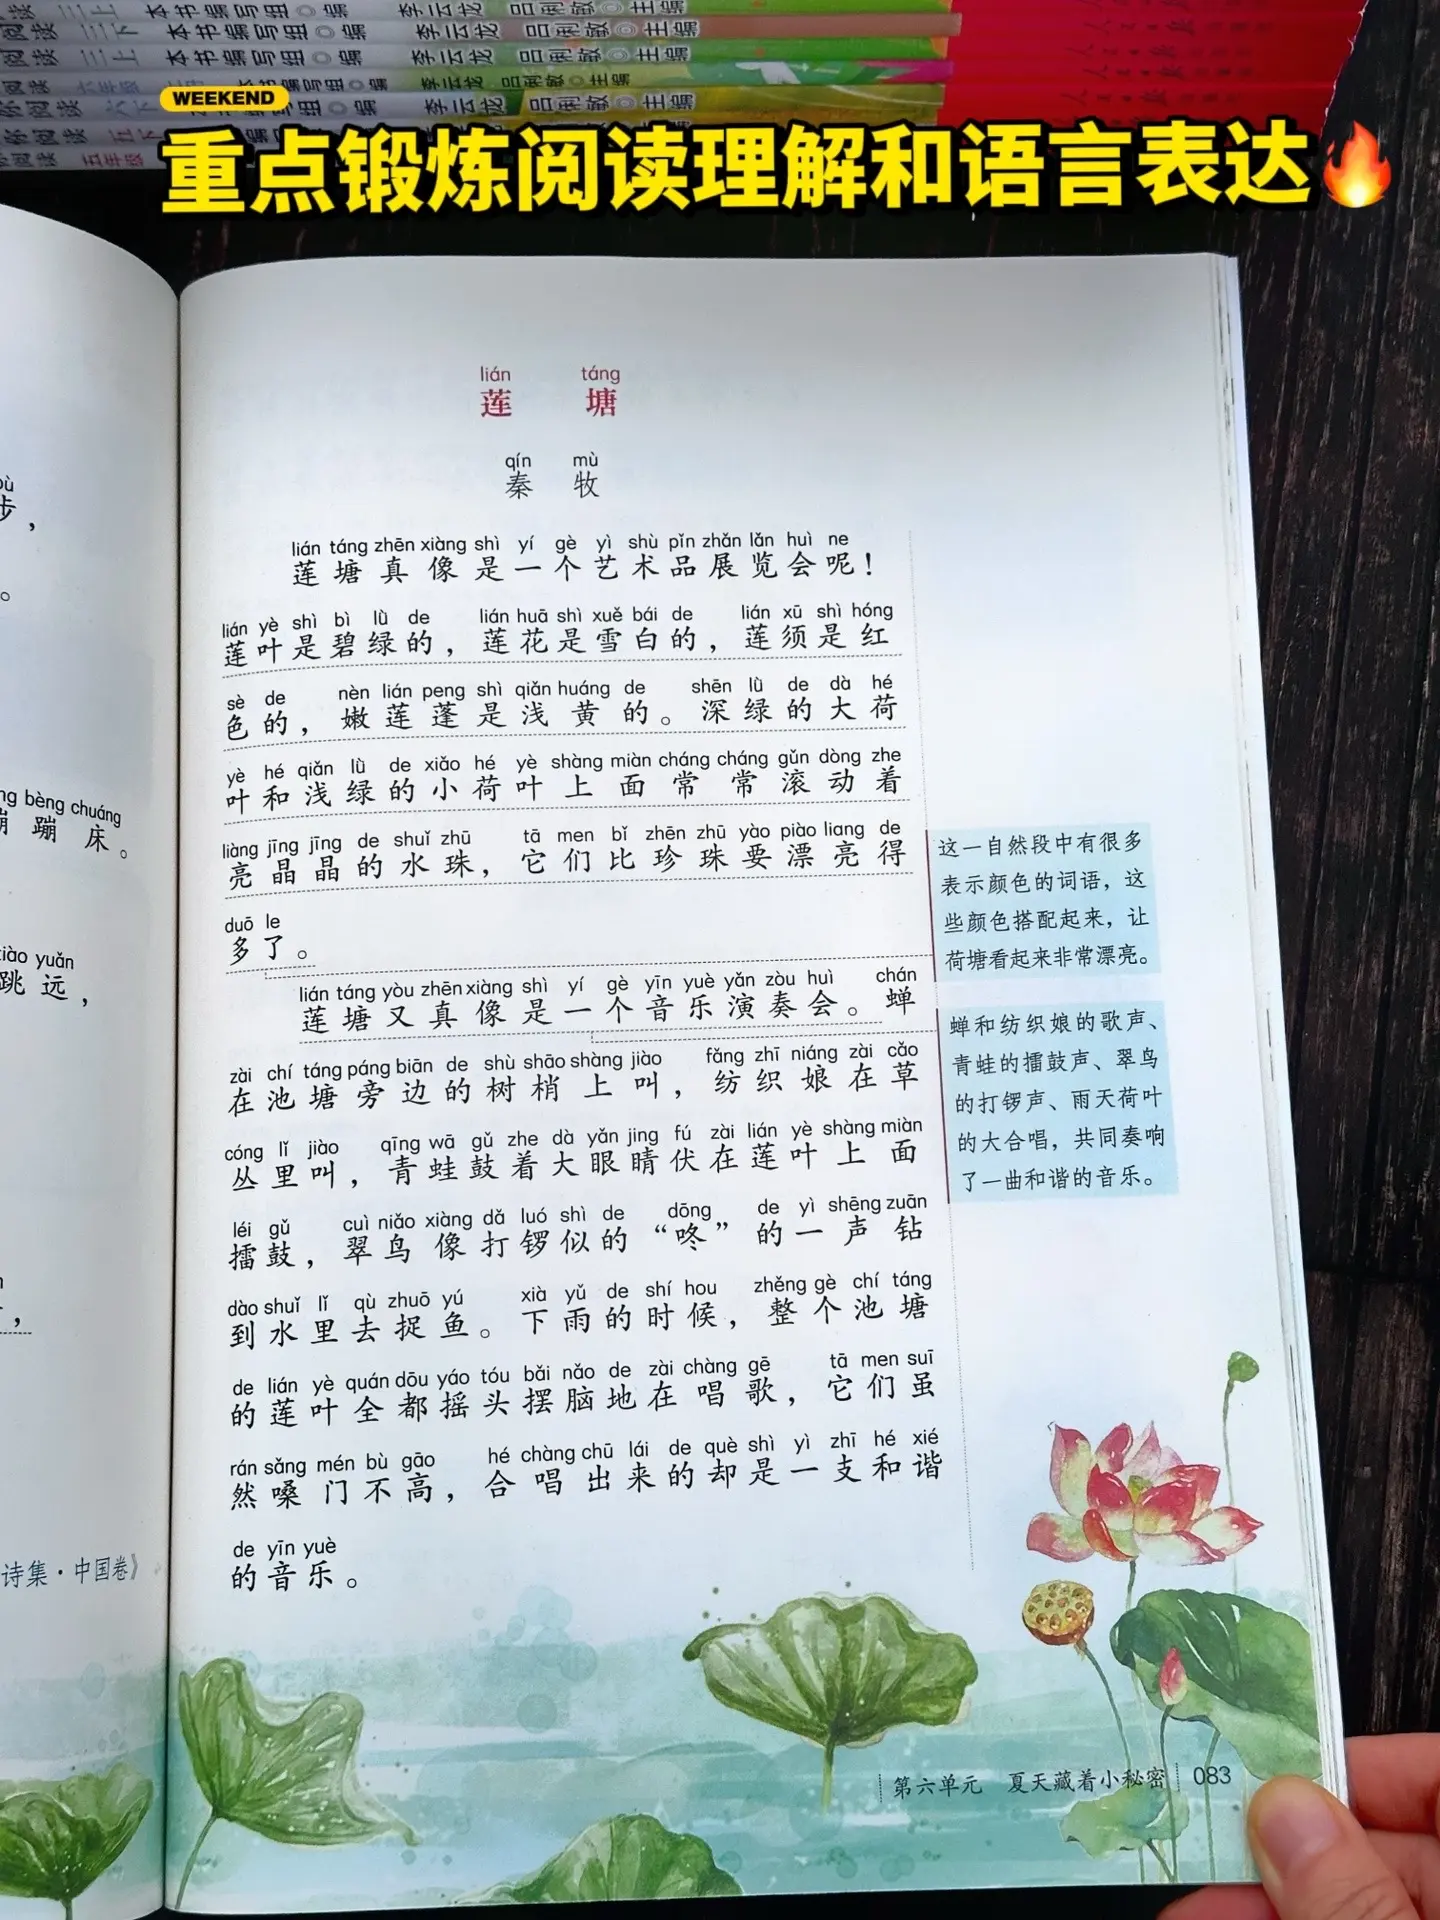 阅读 三上 本书编写组◎编 李云龙 吕俐敏◎主编
阅读 三下 本书编写组◎编 李云龙 吕俐敏◎主编
阅读 三上 本书编写组◎编 李云龙 吕俐敏◎主编
阅读 六年级 本书编写组◎编 李云龙 吕俐敏◎主编
你阅读 六下 编写组◎编 李云龙 吕俐敏◎主编
你阅读 五下
阅读 五年级
人民日报
WEEKEND
重点锻炼阅读理解和语言表达🔥
lián táng
莲塘
qín mù
秦牧
lián táng zhēn xiàng shì yí gè yì shù pǐn zhǎn lǎn huì ne
莲塘真像是一个艺术品展览会呢!
lián yè shì bì lǜ de lián huā shì xuě bái de lián xū shì hóng
莲叶是碧绿的,莲花是雪白的,莲须是红
sè de nèn lián peng shì qiǎn huáng de shēn lǜ de dà hé
色的,嫩莲蓬是浅黄的。深绿的大荷
yè hé qiǎn lǜ de xiǎo hé yè shàng miàn cháng cháng gǔn dòng zhe
叶和浅绿的小荷叶上面常常滚动着
liàng jīng jīng de shuǐ zhū tā men bǐ zhēn zhū yào piào liang de
亮晶晶的水珠,它们比珍珠要漂亮得
duō le
多了。
lián táng yòu zhēn xiàng shì yí gè yīn yuè yǎn zòu huì chán
莲塘又真像是一个音乐演奏会。蝉
zài chí táng páng biān de shù shāo shàng jiào fǎng zhī niáng zài cǎo
在池塘旁边的树梢上叫,纺织娘在草
cóng lǐ jiào qīng wā gǔ zhe dà yǎn jing fú zài lián yè shàng miàn
丛里叫,青蛙鼓着大眼睛伏在莲叶上面
léi gǔ cuì niǎo xiàng dǎ luó shì de dōng de yì shēng zuān
擂鼓,翠鸟像打锣似的“咚”的一声钻
dào shuǐ lǐ qù zhuō yú xià yǔ de shí hou zhěng gè chí táng
到水里去捉鱼。下雨的时候,整个池塘
de lián yè quán dōu yáo tóu bǎi nǎo de zài chàng gē tā men suī
的莲叶全都摇头摆脑地在唱歌,它们虽
rán sǎng mén bù gāo hé chàng chū lái de què shì yì zhī hé xié
然嗓门不高,合唱出来的却是一支和谐
de yīn yuè
的音乐。
这一自然段中有很多
表示颜色的词语,这
些颜色搭配起来,让
荷塘看起来非常漂亮。
蝉和纺织娘的歌声、
青蛙的擂鼓声、翠鸟
的打锣声、雨天荷叶
的大合唱,共同奏响
了一曲和谐的音乐。
步,
bèng chuáng
蹦床。
tiào yuǎn
跳远,
诗集·中国卷》
第六单元 夏天藏着小秘密 083